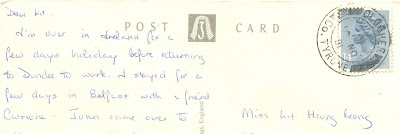 POST CARD
Dear Lit.
I'm over in Ireland for a
few days holiday before returning
to Dundee to work. I stayed for a
few days in Belfast with a friend
John came over to
Miss Lit Heung Keong
CO. TYRONE
England